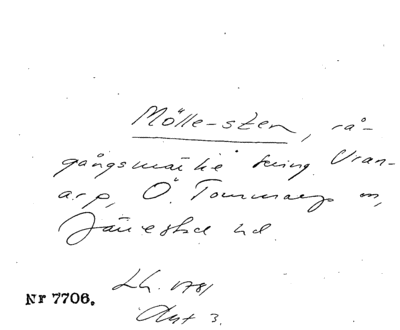 Mölle-sten, rå-
gångsmärke kring Vran-
arp, Ö. Tommarp sn,
Järrestad hd.
Lh. 1781
Akt 3.
Nr 7706.